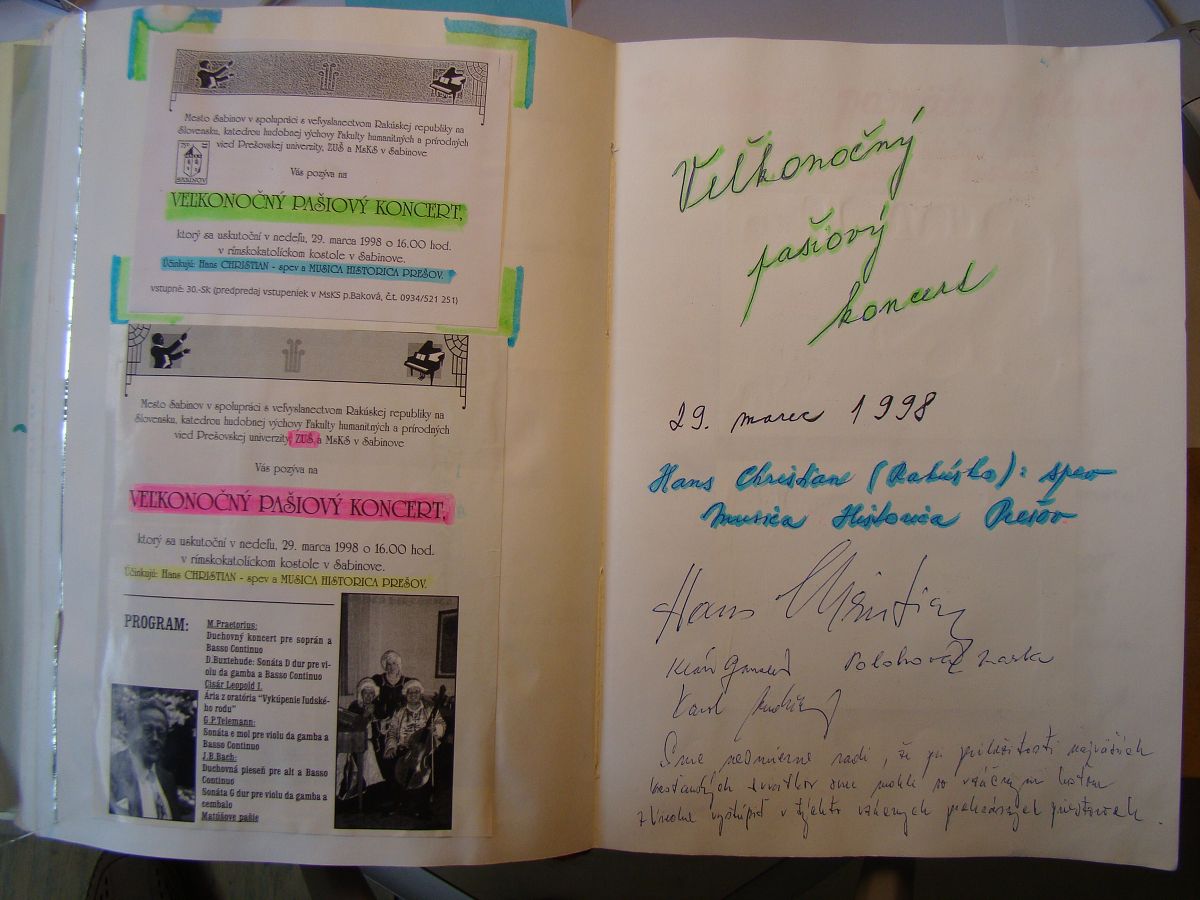 Mesto Sabinov v spolupráci s veľvyslanectvom Rakúskej republiky na
Slovensku, katedrou hudobnej výchovy Fakulty humanitných a prírodných
vied Prešovskej univerzity, ZUŠ a MsKS v Sabinove
SABINOV
Vás pozýva na
VEĽKONOČNÝ PAŠIOVÝ KONCERT,
ktorý sa uskutoční v nedeľu, 29. marca 1998 o 16.00 hod.
v rímskokatolíckom kostole v Sabinove.
Účinkujú: Hans CHRISTIAN - spev a MUSICA HISTORICA PREŠOV.
vstupné: 30.-Sk (predpredaj vstupeniek v MsKS p.Baková, č.t. 0934/521 251)
Mesto Sabinov v spolupráci s veľvyslanectvom Rakúskej republiky na
Slovensku, katedrou hudobnej výchovy Fakulty humanitných a prírodných
vied Prešovskej univerzity, ZUŠ a MsKS v Sabinove
Vás pozýva na
VEĽKONOČNÝ PAŠIOVÝ KONCERT,
ktorý sa uskutoční v nedeľu, 29. marca 1998 o 16.00 hod.
v rímskokatolíckom kostole v Sabinove.
Účinkujú: Hans CHRISTIAN - spev a MUSICA HISTORICA PREŠOV.
PROGRAM:
M.Praetorius:
Duchovný koncert pre soprán a
Basso Continuo
D.Buxtehude: Sonáta D dur pre vi-
olu da gamba a Basso Continuo
Cisár Leopold I.
Ária z oratória "Vykúpenie ľudské-
ho rodu"
G.P.Telemann:
Sonáta e mol pre violu da gamba a
Basso Continuo
J.B.Bach:
Duchovná pieseň pre alt a Basso
Continuo
Sonáta G dur pre violu da gamba a
cembalo
Matúšove pašie
Veľkonočný
pašiový
koncert
29. marec 1998
Hans Christian (Rakúsko): spev
Musica Historica Prešov
Hans Christian
Karol
Sme nesmierne radi, že pri príležitosti najväčších
kresťanských sviatkov sme mohli so vzácnym hosťom
z Viedne vystúpiť v týchto vzácnych priestoroch.